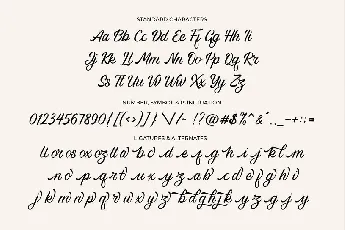 STANDARD CHARACTERS
Aa Bb Cc Dd Ee Ff Gg Hh Ii
Jj Kk Ll Mm Nn Oo Pp Qq Rr
Ss Tt Uu Vv Ww Xx Yy Zz
NUMBER, SYMBOL & PUNCTUATION
01234567890([{<>}])\/|- !?@#$%^&*.,_-+:;=
LIGATURES & ALTERNATES
b c d e f g h i j k l m
n o p q r t u x y z a b c d e f g h
j k m n p q r u x y z b d g h j k y z g j y